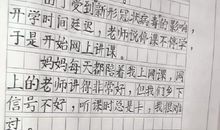 由于受到新形冠状病毒的影响，
开学时间延迟，老师说停课不停学，
于是开始网上讲课。
妈妈每天都陪着我上网课，网
上的老师讲得非常好，但我们乡下
信号不好，听课时总是卡，我很难
过。